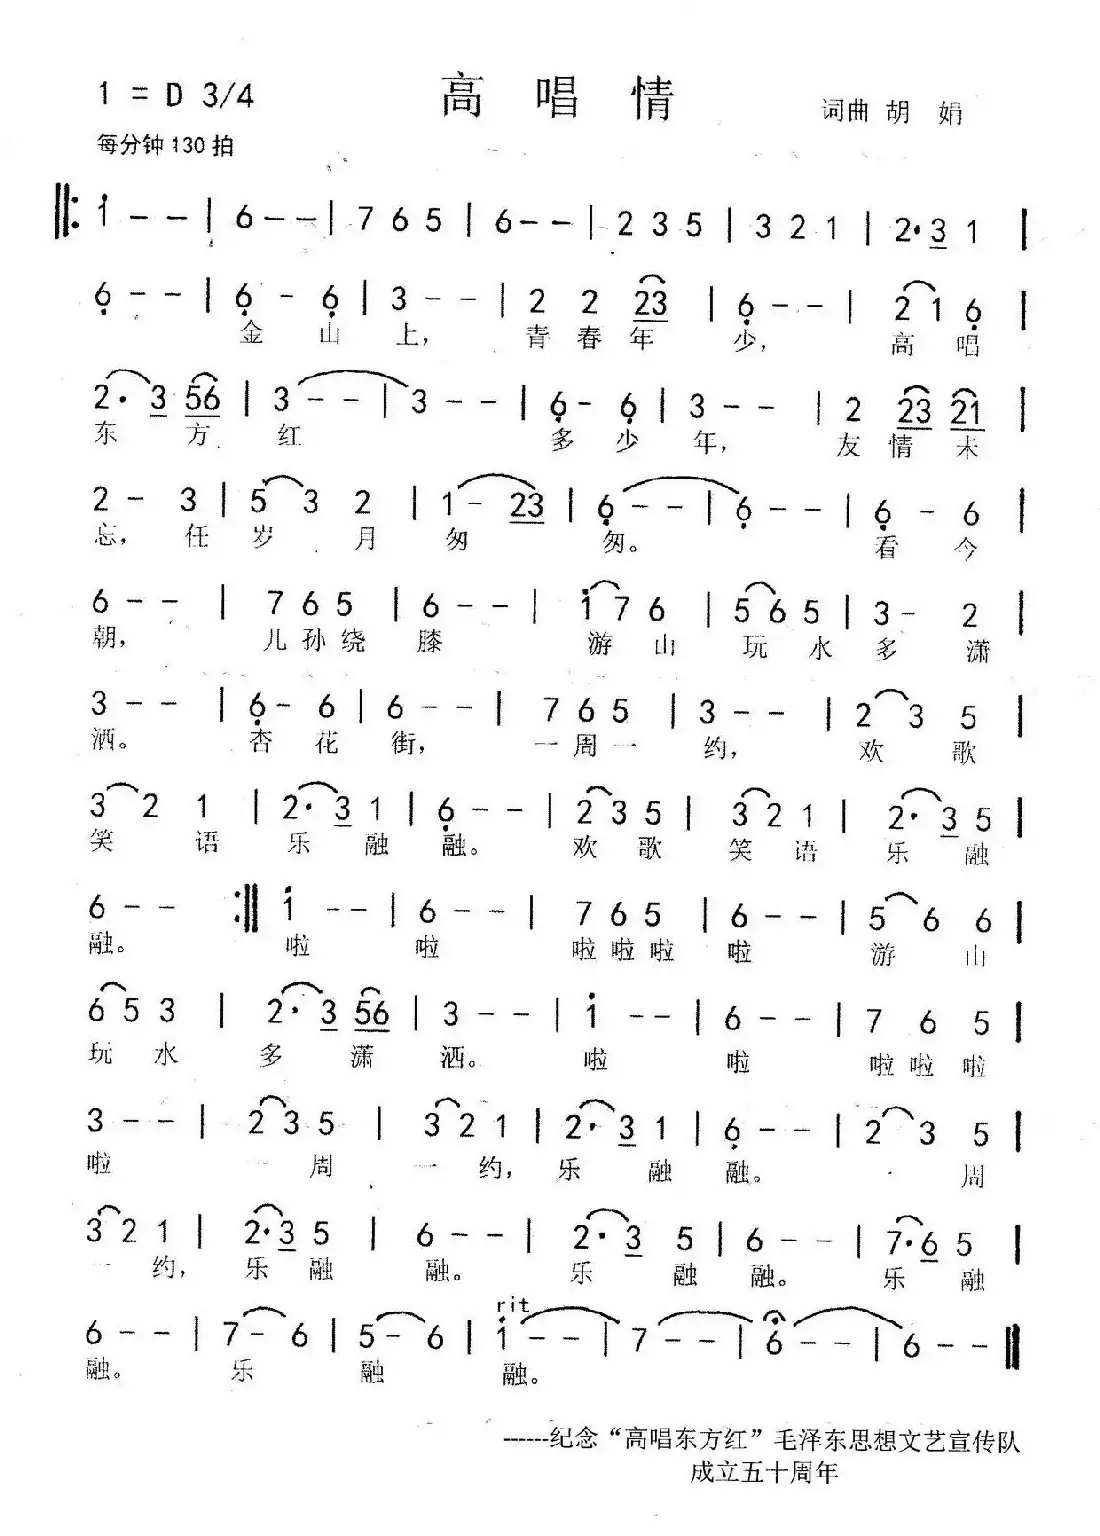 1 = D 3/4 高 唱 情 词曲 胡 娟
每分钟130拍
‖: i - - | 6 - - | 7 6 5 | 6 - - | 2 3 5 | 3 2 1 | 2· 3 1 |
6 - - | 6 - 6 | 3 - - | 2 2 23 | 6 - - | 2 1 6 |
金 山 上， 青 春 年 少， 高 唱
2· 3 56 | 3 - - | 3 - - | 6 - 6 | 3 - - | 2 23 21 |
东 方 红 多 少 年， 友 情 未
2 - 3 | 5 3 2 | 1 - 23 | 6 - - | 6 - - | 6 - 6 |
忘， 任 岁 月 匆 匆。 看 今
6 - - | 7 6 5 | 6 - - | i 7 6 | 5 6 5 | 3 - 2 |
朝， 儿 孙 绕 膝 游 山 玩 水 多 潇
3 - - | 6 - 6 | 6 - - | 7 6 5 | 3 - - | 2 3 5 |
洒。 杏 花 街， 一 周 一 约， 欢 歌
3 2 1 | 2· 3 1 | 6 - - | 2 3 5 | 3 2 1 | 2· 3 5 |
笑 语 乐 融 融。 欢 歌 笑 语 乐 融
6 - - :‖ i - - | 6 - - | 7 6 5 | 6 - - | 5 6 6 |
融。 啦 啦 啦 啦 啦 啦 游 山
6 5 3 | 2· 3 56 | 3 - - | i - - | 6 - - | 7 6 5 |
玩 水 多 潇 洒。 啦 啦 啦 啦 啦
3 - - | 2 3 5 | 3 2 1 | 2· 3 1 | 6 - - | 2 3 5 |
啦 一 周 一 约， 乐 融 融。 周
3 2 1 | 2· 3 5 | 6 - - | 2· 3 5 | 6 - - | 7· 6 5 |
一 约， 乐 融 融。 乐 融 融。 乐 融
rit
6 - - | 7 - 6 | 5 - 6 | i - - | 7 - - | 6 - - | 6 - - ‖
融。 乐 融 融。
------纪念“高唱东方红”毛泽东思想文艺宣传队
成立五十周年